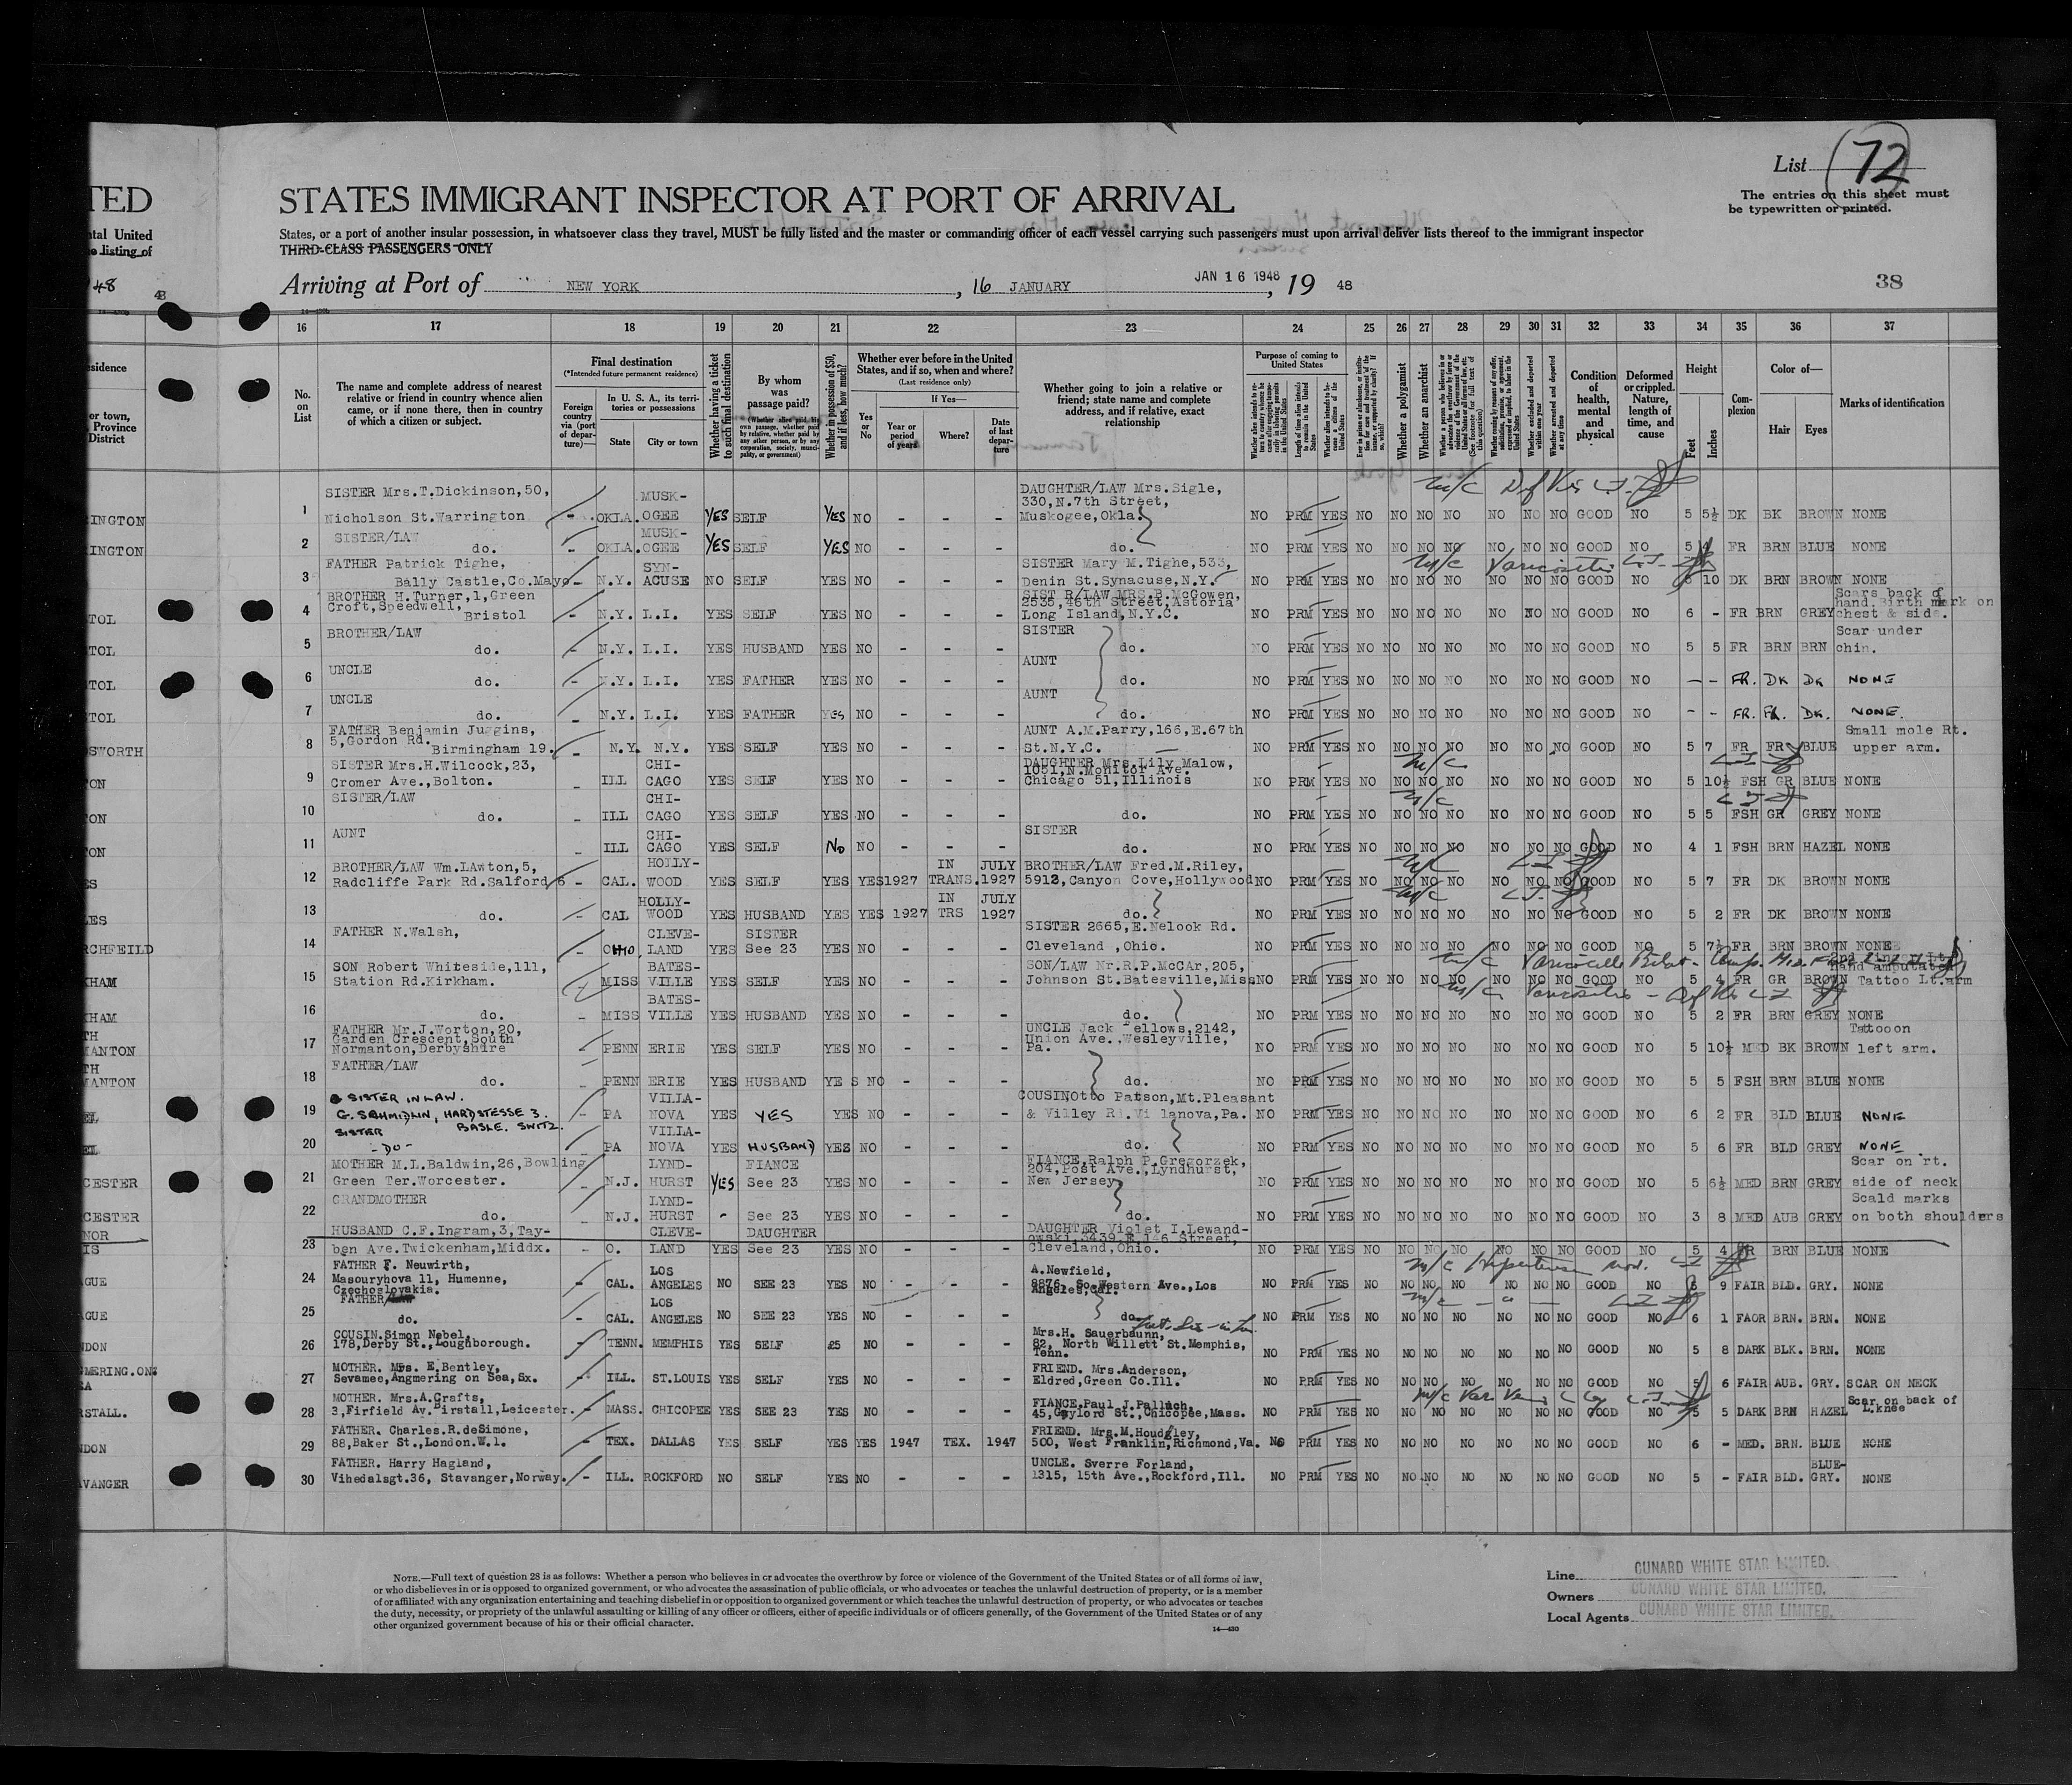 List 72
The entries on this sheet must
be typewritten or printed.
TED
STATES IMMIGRANT INSPECTOR AT PORT OF ARRIVAL
ntal United
e listing of
States, or a port of another insular possession, in whatsoever class they travel, MUST be fully listed and the master or commanding officer of each vessel carrying such passengers must upon arrival deliver lists thereof to the immigrant inspector
THIRD-CLASS PASSENGERS ONLY
48
Arriving at Port of NEW YORK, 16 JANUARY JAN 16 1948, 19 48
38
16 17 18 19 20 21 22 23 24 25 26 27 28 29 30 31 32 33 34 35 36 37
No. on List
The name and complete address of nearest relative or friend in country whence alien came, or if none there, then in country of which a citizen or subject.
Final destination
(*Intended future permanent residence)
Foreign country via (port of departure)—
In U. S. A., its territories or possessions
State
City or town
Whether having a ticket to such final destination
By whom was passage paid?
Whether in possession of $50, and if less, how much?
Whether ever before in the United States, and if so, when and where?
(Last residence only)
Yes or No
If Yes—
Year or period of years
Where?
Date of last departure
Whether going to join a relative or friend; state name and complete address, and if relative, exact relationship
Purpose of coming to United States
Whether a polygamist
Whether an anarchist
Condition of health, mental and physical
Deformed or crippled. Nature, length of time, and cause
Height
Feet
Inches
Complexion
Color of—
Hair
Eyes
Marks of identification
RINGTON 1 SISTER Mrs.T.Dickinson,50, Nicholson St.Warrington - OKLA. MUSK-OGEE YES SELF YES NO - - - DAUGHTER/LAW Mrs.Sigle, 330,N.7th Street, Muskogee,Okla. NO PRM YES NO NO NO NO NO NO NO GOOD NO 5 5½ DK BK BROWN NONE
RINGTON 2 SISTER/LAW do. - OKLA. MUSK-OGEE YES SELF YES NO - - - do. NO PRM YES NO NO NO NO NO NO NO GOOD NO 5 4 FR BRN BLUE NONE
3 FATHER Patrick Tighe, Bally Castle,Co.Mayo - N.Y. SYN-ACUSE NO SELF YES NO - - - SISTER Mary M.Tighe,533, Denin St.Synacuse,N.Y. NO PRM YES NO NO NO NO NO NO NO GOOD NO 10 DK BRN BROWN NONE
TOL 4 BROTHER H.Turner,1,Green Croft,Speedwell, Bristol - N.Y. L.I. YES SELF YES NO - - - SIST R/LAW MRS.B.McGowen, 2535,46th Street,Astoria Long Island,N.Y.C. NO PRM YES NO NO NO NO NO NO NO GOOD NO 6 - FR BRN GREY Scars back of hand.Birth mark on chest & side.
TOL 5 BROTHER/LAW do. - N.Y. L.I. YES HUSBAND YES NO - - - SISTER do. NO PRM YES NO NO NO NO NO NO NO GOOD NO 5 5 FR BRN BRN Scar under chin.
TOL 6 UNCLE do. - N.Y. L.I. YES FATHER YES NO - - - AUNT do. NO PRM YES NO NO NO NO NO NO NO GOOD NO - - FR. DK DK NONE
TOL 7 UNCLE do. - N.Y. L.I. YES FATHER YES NO - - - AUNT do. NO PRM YES NO NO NO NO NO NO NO GOOD NO - - FR. FR. DK. NONE.
SWORTH 8 FATHER Benjamin Juggins, 5,Gordon Rd. Birmingham 19. - N.Y. N.Y. YES SELF YES NO - - - AUNT A.M.Parry,166,E.67th St.N.Y.C. NO PRM YES NO NO NO NO NO NO NO GOOD NO 5 7 FR FR BLUE Small mole Rt. upper arm.
ON 9 SISTER Mrs.H.Wilcock,23, Cromer Ave.,Bolton. - ILL CHI-CAGO YES SELF YES NO - - - DAUGHTER Mrs.Lily Malow, 1051,N.Monitor Ave. Chicago 51,Illinois NO PRM YES NO NO NO NO NO NO NO GOOD NO 5 10½ FSH GR BLUE NONE
ON 10 SISTER/LAW do. - ILL CHI-CAGO YES SELF YES NO - - - do. NO PRM YES NO NO NO NO NO NO NO GOOD NO 5 5 FSH GR GREY NONE
ON 11 AUNT - ILL CHI-CAGO YES SELF No NO - - - SISTER do. NO PRM YES NO NO NO NO NO NO NO GOOD NO 4 1 FSH BRN HAZEL NONE
ES 12 BROTHER/LAW Wm.LAwton,5, Radcliffe Park Rd.Salford 6 - CAL. HOLLY-WOOD YES SELF YES YES 1927 IN TRANS. JULY 1927 BROTHER/LAW Fred.M.Riley, 5912,Canyon Cove,Hollywood NO PRM YES NO NO NO NO NO NO NO GOOD NO 5 7 FR DK BROWN NONE
LES 13 do. - CAL HOLLY-WOOD YES HUSBAND YES YES 1927 IN TRS JULY 1927 do. NO PRM YES NO NO NO NO NO NO NO GOOD NO 5 2 FR DK BROWN NONE
RCHFEILD 14 FATHER N.Walsh, OHIO. CLEVE-LAND YES SISTER See 23 YES NO - - - SISTER 2665,E.Nelook Rd. Cleveland ,Ohio. NO PRM YES NO NO NO NO NO NO NO GOOD NO 5 7½ FR BRN BROWN NONE
KHAM 15 SON Robert Whiteside,111, Station Rd.Kirkham. MISS BATES-VILLE YES SELF YES NO - - - SON/LAW Mr.R.P.McCAr,205, Johnson St.Batesville,Miss NO PRM YES NO NO NO NO NO NO NO GOOD NO 5 4 FR GR BROWN hand amputated Tattoo Lt.arm
KHAM 16 do. - MISS BATES-VILLE YES HUSBAND YES NO - - - do. NO PRM YES NO NO NO NO NO NO NO GOOD NO 5 2 FR BRN GREY NONE
TH MANTON 17 FATHER Mr.J.Worton,20, Garden Crescent,South Normanton,Derbyshire - PENN ERIE YES SELF YES NO - - - UNCLE Jack Fellows,2142, Union Ave.,Wesleyville, Pa. NO PRM YES NO NO NO NO NO NO NO GOOD NO 5 10½ MED BK BROWN Tattooon left arm.
TH MANTON 18 FATHER/LAW do. PENN ERIE YES HUSBAND YE S NO - - - do. NO PRM YES NO NO NO NO NO NO NO GOOD NO 5 5 FSH BRN BLUE NONE
EL 19 SISTER IN LAW. G. SCHMIDLIN, HARDSTESSE 3. BASLE. SWITZ. - PA VILLA-NOVA YES YES YES NO - - - COUSINOtto Patson,Mt.Pleasant & Villey Rd.Vi lanova,Pa. NO PRM YES NO NO NO NO NO NO NO GOOD NO 6 2 FR BLD BLUE NONE
EL 20 SISTER -DO- PA VILLA-NOVA YES HUSBAND YES NO - - - do. NO PRM YES NO NO NO NO NO NO NO GOOD NO 5 6 FR BLD GREY NONE
CESTER 21 MOTHER M.L.Baldwin,26,Bowling Green Ter.Worcester. - N.J. LYND-HURST YES FIANCE See 23 YES NO - - - FIANCE,Ralph P.Gregorzek, 204,Post Ave.,Lyndhurst, New Jersey NO PRM YES NO NO NO NO NO NO NO GOOD NO 5 6½ MED BRN GREY Scar on rt. side of neck
CESTER 22 GRANDMOTHER do. - N.J. LYND-HURST - See 23 YES NO - - - do. NO PRM YES NO NO NO NO NO NO NO GOOD NO 3 8 MED AUB GREY Scald marks on both shoulders
NOR IS 23 HUSBAND C.F.Ingram,3,Tay-ben Ave.Twickenham,Middx. - O. CLEVE-LAND YES DAUGHTER See 23 YES NO - - - DAUGHTER Violet I.Lewand-owski,3439,E,146 Street, Cleveland,Ohio. NO PRM YES NO NO NO NO NO NO NO GOOD NO 5 4 FR BRN BLUE NONE
AGUE 24 FATHER F. Neuwirth, Masouryhova 11, Humenne, Czechoslovakia. - CAL. LOS ANGELES NO SEE 23 YES NO - - - A.Newfield, 8876, So.Western Ave.,Los Angeles,Cal. NO PRM YES NO NO NO NO NO NO NO GOOD NO 9 FAIR BLD. GRY. NONE
AGUE 25 FATHER/LAW do. - CAL. LOS ANGELES NO SEE 23 YES NO - - - do. NO PRM YES NO NO NO NO NO NO NO GOOD NO 6 1 FAOR BRN. BRN. NONE
NDON 26 COUSIN.Simon Nobel, 178,Derby St.,Loughborough. - TENN. MEMPHIS YES SELF £5 NO - - - Mrs.H. Sauerbaunn, 82, North Willett St.Memphis, Tenn. NO PRM YES NO NO NO NO NO NO NO GOOD NO 5 8 DARK BLK. BRN. NONE
GMERING.ON: EA 27 MOTHER. Mrs. E.Bentley, Sevamee,Angmering on Sea,Sx. - ILL. ST.LOUIS YES SELF YES NO - - - FRIEND. Mrs.Anderson, Eldred,Green Co.Ill. NO PRM YES NO NO NO NO NO NO NO GOOD NO 5 6 FAIR AUB. GRY. SCAR ON NECK
RSTALL. 28 MOTHER. Mrs.A.Crafts, 3,Firfield Av.Birstall,Leicester. - MASS. CHICOPEE YES SEE 23 YES NO - - - FIANCE,Paul J.Palluch, 45,Gaylord St.,Chicopee,Mass. NO PRM YES NO NO NO NO NO NO NO GOOD NO 5 5 DARK BRN HAZEL Scar on back of L.knee
NDON 29 FATHER. Charles.R.deSimone, 88,Baker St.,London.W.1. - TEX. DALLAS YES SELF YES YES 1947 TEX. 1947 FRIEND. Mrs.M.Houdgley, 500, West Franklin,Richmond,Va. NO PRM YES NO NO NO NO NO NO NO GOOD NO 6 - MED. BRN. BLUE NONE
AVANGER 30 FATHER. Harry Hagland, Vihedalsgt.36, Stavanger,Norway. - ILL. ROCKFORD NO SELF YES NO - - - UNCLE. Sverre Forland, 1315, 15th Ave.,Rockford,Ill. NO PRM YES NO NO NO NO NO NO NO GOOD NO 5 - FAIR BLD. BLUE-GRY. NONE
NOTE.—Full text of question 28 is as follows: Whether a person who believes in or advocates the overthrow by force or violence of the Government of the United States or of all forms of law,
or who disbelieves in or is opposed to organized government, or who advocates the assassination of public officials, or who advocates or teaches the unlawful destruction of property, or is a member
of or affiliated with any organization entertaining and teaching disbelief in or opposition to organized government or which teaches the unlawful destruction of property, or who advocates or teaches
the duty, necessity, or propriety of the unlawful assaulting or killing of any officer or officers, either of specific individuals or of officers generally, of the Government of the United States or of any
other organized government because of his or their official character.
14—430
Line CUNARD WHITE STAR LIMITED.
Owners CUNARD WHITE STAR LIMITED.
Local Agents CUNARD WHITE STAR LIMITED.